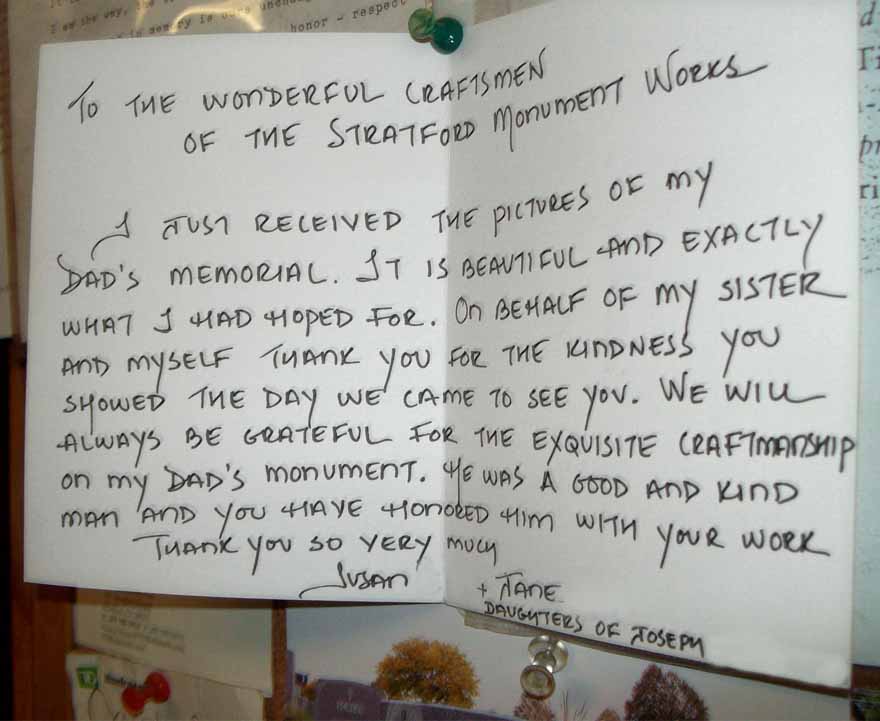 honor - respect
TO THE WONDERFUL CRAFTSMEN
OF THE STRATFORD MONUMENT WORKS
I JUST RECEIVED THE PICTURES OF MY
DAD'S MEMORIAL. IT IS BEAUTIFUL AND EXACTLY
WHAT I HAD HOPED FOR. ON BEHALF OF MY SISTER
AND MYSELF THANK YOU FOR THE KINDNESS YOU
SHOWED THE DAY WE CAME TO SEE YOU. WE WILL
ALWAYS BE GRATEFUL FOR THE EXQUISITE CRAFTMANSHIP
ON MY DAD'S MONUMENT. HE WAS A GOOD AND KIND
MAN AND YOU HAVE HONORED HIM WITH YOUR WORK
THANK YOU SO VERY MUCH
SUSAN
+ JANE
DAUGHTERS OF JOSEPH